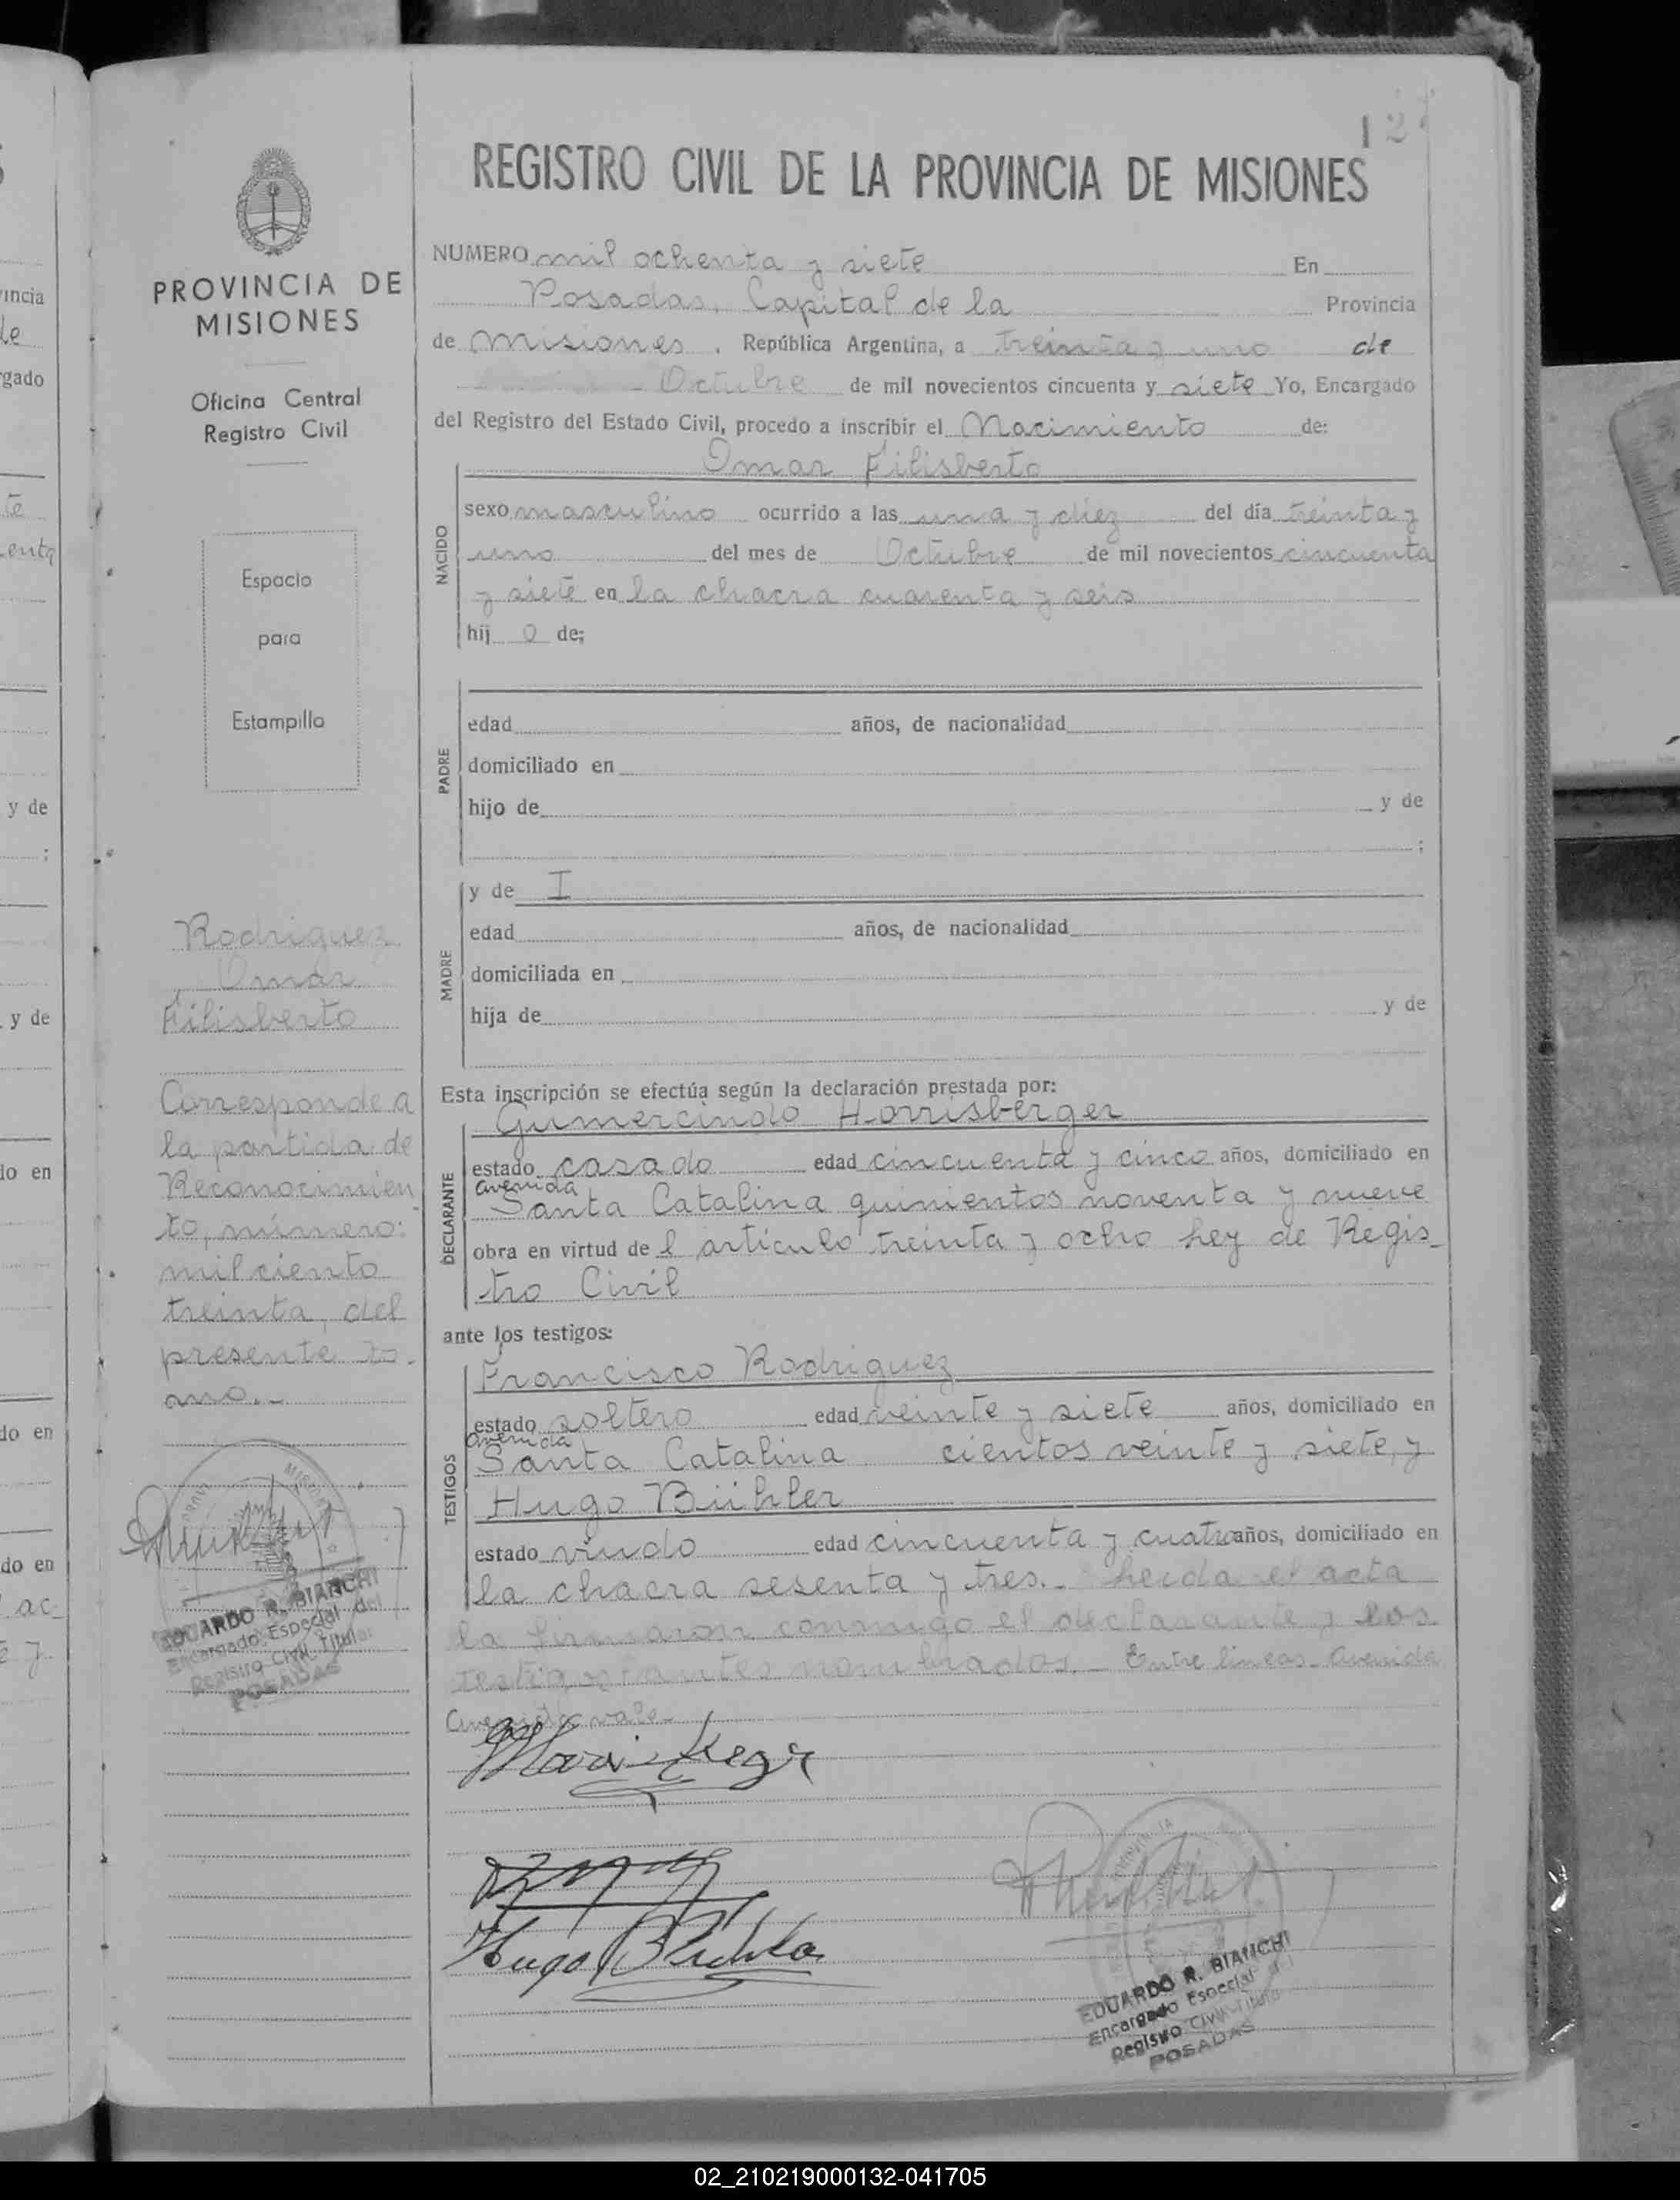 12
REGISTRO CIVIL DE LA PROVINCIA DE MISIONES
PROVINCIA DE
MISIONES
Oficina Central
Registro Civil
Espacio
para
Estampilla
Rodriguez
Omar
Filisberto
Corresponde a
la partida de
Reconocimien
to, número:
mil ciento
treinta, del
presente to-
mo.-
EDUARDO R. BIANCHI
Encargado Especial del
Registro Civil Titular
POSADAS
NUMERO mil ochenta y siete En
Posadas, Capital de la Provincia
de Misiones . República Argentina, a treinta y uno de
Octubre de mil novecientos cincuenta y siete Yo, Encargado
del Registro del Estado Civil, procedo a inscribir el Nacimiento de:
NACIDO
Omar Filisberto
sexo masculino ocurrido a las una y diez del día treinta y
uno del mes de Octubre de mil novecientos cincuenta
y siete en la chacra cuarenta y seis
hij o de;
PADRE
edad años, de nacionalidad
domiciliado en
hijo de y de
;
MADRE
y de I
edad años, de nacionalidad
domiciliada en
hija de y de
Esta inscripción se efectúa según la declaración prestada por:
DECLARANTE
Gumercindo Horrisberger
estado casado edad cincuenta y cinco años, domiciliado en
avenida
Santa Catalina quinientos noventa y nueve
obra en virtud de l artículo treinta y ocho Ley de Regis-
tro Civil
ante los testigos:
TESTIGOS
Francisco Rodriguez
estado soltero edad veinte y siete años, domiciliado en
avenida
Santa Catalina cientos veinte y siete, y
Hugo Büihler
estado viudo edad cincuenta y cuatro años, domiciliado en
la chacra sesenta y tres.- Leida el acta
la firmaron conmigo el declarante y los
testigos antes nombrados.- Entre lineas- avenida
avenida vale-
Hugo
EDUARDO R. BIANCHI
Encargado Especial del
Registro Civil Titular
POSADAS
incia
de
gado
te
enta
y de
;
y de
do en
do en
do en
ac-
y
02_210219000132-041705